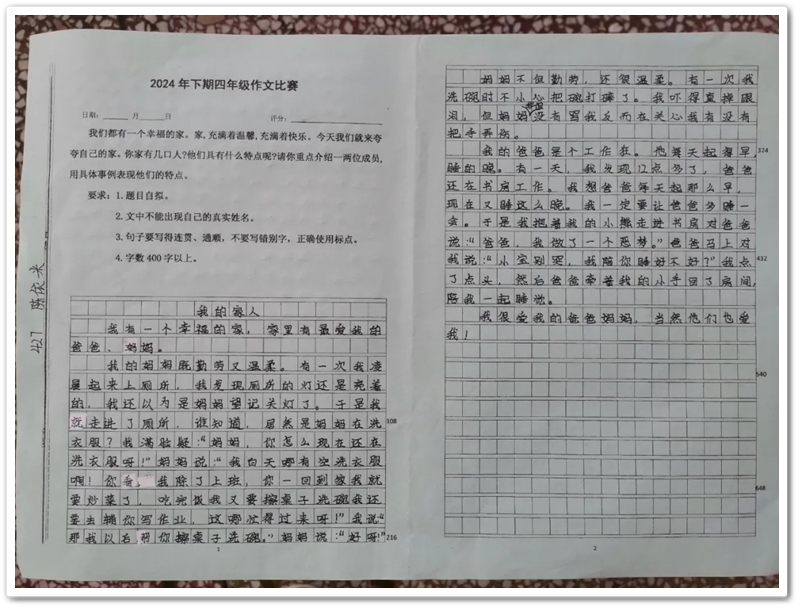 2024年下期四年级作文比赛
日期：______月______日 评分：__________
我们都有一个幸福的家。家,充满着温馨,充满着快乐，今天我们就来夸
夸自己的家。你家有几口人?他们具有什么特点呢?请你重点介绍一两位成员,
用具体事例表现他们的特点。
要求：1.题目自拟。
2.文中不能出现自己的真实姓名。
3.句子要写得连贯、通顺，不要写错别字，正确使用标点。
4.字数400字以上。
427
我的家人
我有一个幸福的家，家里有最爱我的
爸爸、妈妈。
我的妈妈既勤劳又温柔。有一次我凌
晨起来上厕所，我发现厕所的灯还是亮着
的，我还以为是妈妈望记关灯了。于是我
就走进了厕所，谁知道，居然是妈妈在洗 108
衣服？我满脸疑：“妈妈，你怎么现在还在
洗衣服呀！”妈妈说：“我白天哪有空洗衣服
啊！你看，我除了上班，你一回到家我就
要炒菜了，吃完饭我又要擦桌子洗碗我还
要去辅你写作业，这哪忙得过来呀！”我说“
那我以后帮你擦桌子洗碗。”妈妈说：“好呀！” 216
1
妈妈不但勤劳，还很温柔。有一次我
洗碗时不小心把碗打碎了。我吓得直掉眼
泪，但妈妈没有骂我反而在关心我有没有
把手弄伤。
我的爸爸是个工作狂。他每天起得早， 324
睡的晚。有一天，我发现12点多了，爸爸
还在书房工作。我想爸爸每天起那么早，
现在又睡这么晚。我一定要让爸爸多睡一
会。于是我抱着我的小熊走进书房对爸爸
说：“爸爸，我做了一个恶梦。”爸爸马上对
我说：“小宝别哭，我陪你睡好不好？”我点 432
了点头，然后爸爸牵着我的小手回了房间，
陪我一起睡觉。
我很爱我的爸爸妈妈，当然他们也爱
我！
540
648
2